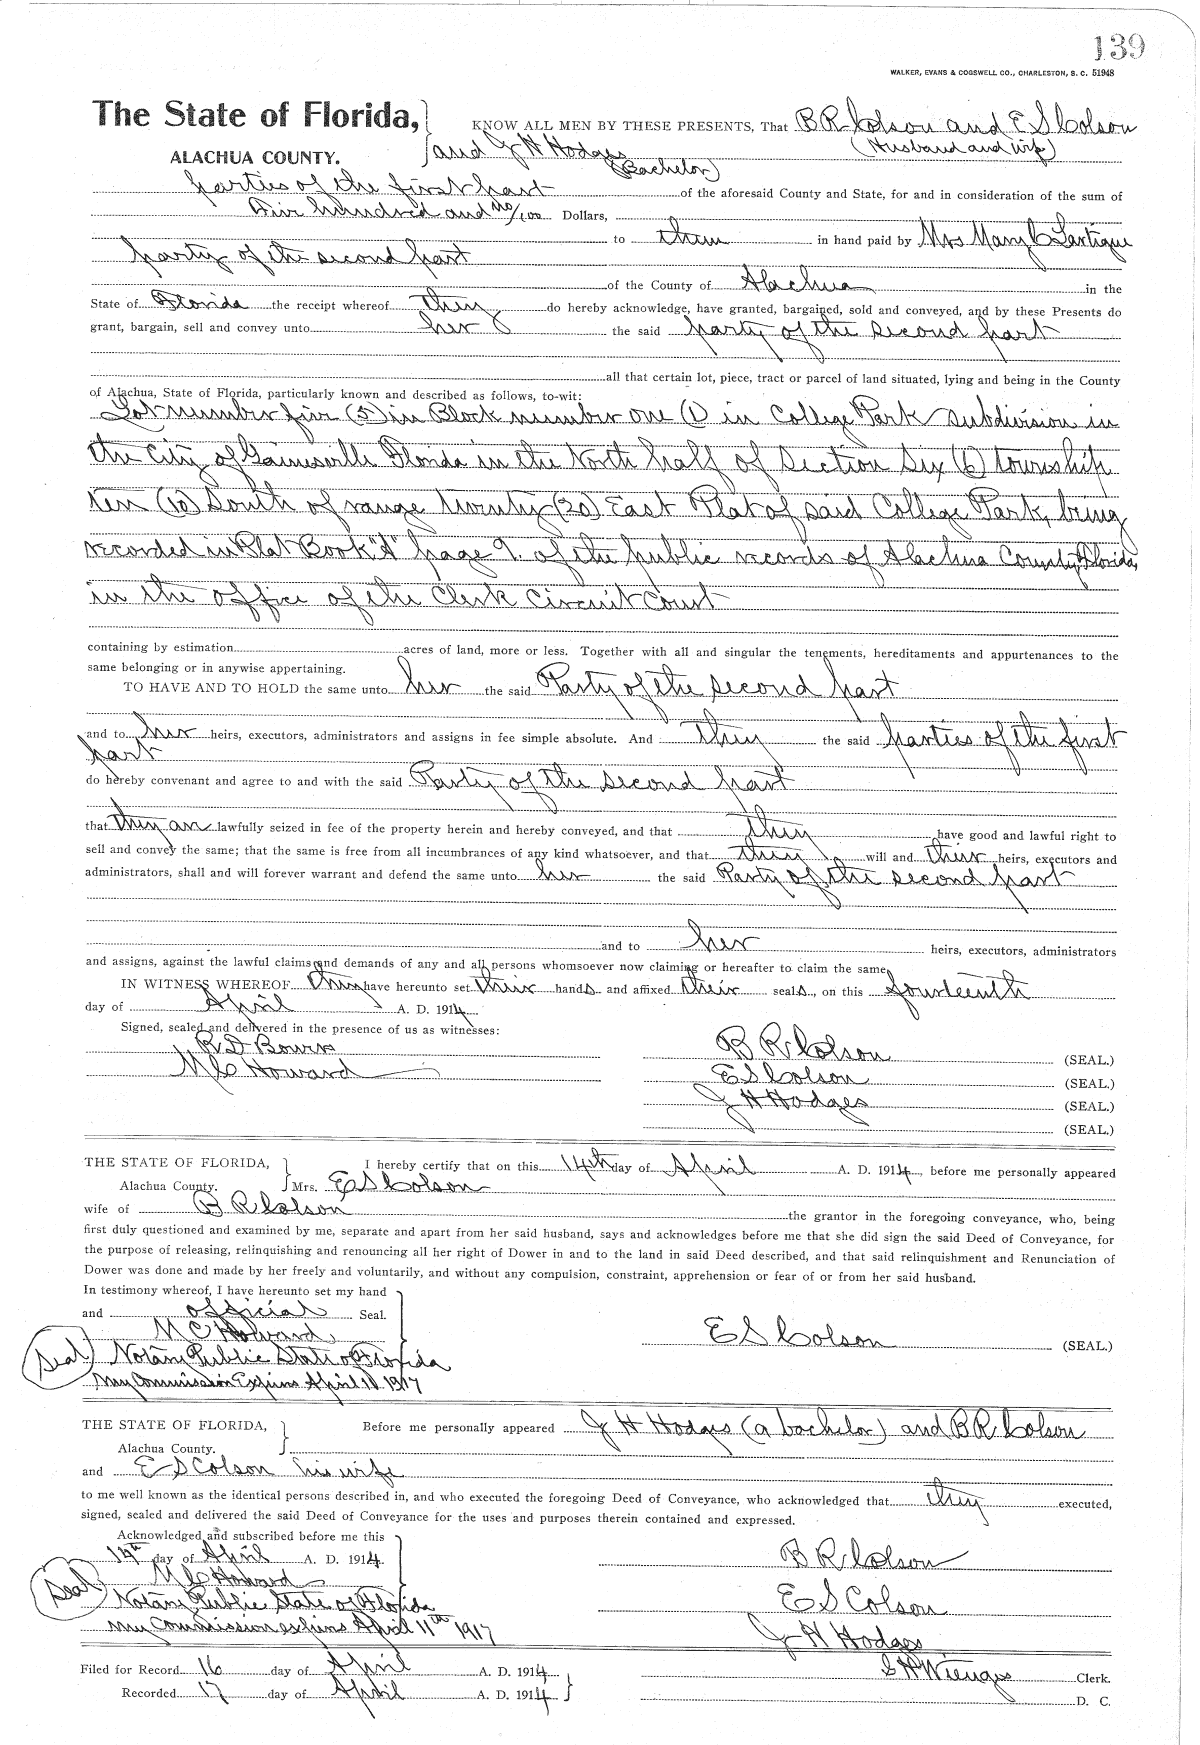 139
WALKER, EVANS & COGSWELL CO., CHARLESTON, S. C. 51948
The State of Florida,
KNOW ALL MEN BY THESE PRESENTS, That B R Colson and E S Colson
ALACHUA COUNTY. and J H Hodges (Husband and wife)
(Bachelor)
parties of the first part of the aforesaid County and State, for and in consideration of the sum of
Five hundred and no/100 Dollars,
to them in hand paid by Mrs Mary C Lartigue
party of the second part
of the County of Alachua in the
State of Florida the receipt whereof they do hereby acknowledge, have granted, bargained, sold and conveyed, and by these Presents do
grant, bargain, sell and convey unto her the said party of the second part
all that certain lot, piece, tract or parcel of land situated, lying and being in the County
of Alachua, State of Florida, particularly known and described as follows, to-wit:
Lot number five (5) in Block number one (1) in College Park subdivision in
the City of Gainesville Florida in the North half of Section Six (6) township
ten (10) South of range twenty (20) East Plat of said College Park, being
recorded in Plat Book "A" page 9. of the public records of Alachua County, Florida,
in the office of the Clerk Circuit Court
containing by estimation acres of land, more or less. Together with all and singular the tenements, hereditaments and appurtenances to the
same belonging or in anywise appertaining.
TO HAVE AND TO HOLD the same unto her the said Party of the second part
and to her heirs, executors, administrators and assigns in fee simple absolute. And they the said parties of the first
part
do hereby convenant and agree to and with the said Party of the second part
that they are lawfully seized in fee of the property herein and hereby conveyed, and that they have good and lawful right to
sell and convey the same; that the same is free from all incumbrances of any kind whatsoever, and that they will and their heirs, executors and
administrators, shall and will forever warrant and defend the same unto her the said Party of the second part
and to her heirs, executors, administrators
and assigns, against the lawful claims and demands of any and all persons whomsoever now claiming or hereafter to claim the same.
IN WITNESS WHEREOF they have hereunto set their hands and affixed their seals, on this fourteenth
day of April A. D. 1914
Signed, sealed and delivered in the presence of us as witnesses:
R D Bowers
B R Colson (SEAL.)
M C Howard
E S Colson (SEAL.)
J H Hodges (SEAL.)
(SEAL.)
THE STATE OF FLORIDA, I hereby certify that on this 14th day of April A. D. 1914, before me personally appeared
Alachua County. Mrs. E S Colson
wife of B R Colson the grantor in the foregoing conveyance, who, being
first duly questioned and examined by me, separate and apart from her said husband, says and acknowledges before me that she did sign the said Deed of Conveyance, for
the purpose of releasing, relinquishing and renouncing all her right of Dower in and to the land in said Deed described, and that said relinquishment and Renunciation of
Dower was done and made by her freely and voluntarily, and without any compulsion, constraint, apprehension or fear of or from her said husband.
In testimony whereof, I have hereunto set my hand
and official Seal.
M C Howard
E S Colson (SEAL.)
Seal Notary Public State of Florida
My Commission Expires April 11 1917
THE STATE OF FLORIDA, Before me personally appeared J H Hodges (a bachelor) and B R Colson
Alachua County.
and E S Colson his wife
to me well known as the identical persons described in, and who executed the foregoing Deed of Conveyance, who acknowledged that they executed,
signed, sealed and delivered the said Deed of Conveyance for the uses and purposes therein contained and expressed.
Acknowledged and subscribed before me this
14th day of April A. D. 1914.
B R Colson
M C Howard
Seal Notary Public State of Florida
E S Colson
My Commission expires April 11th 1917
J H Hodges
Filed for Record 16 day of April A. D. 1914
S H Wienges Clerk.
Recorded 17 day of April A. D. 1914
D. C.